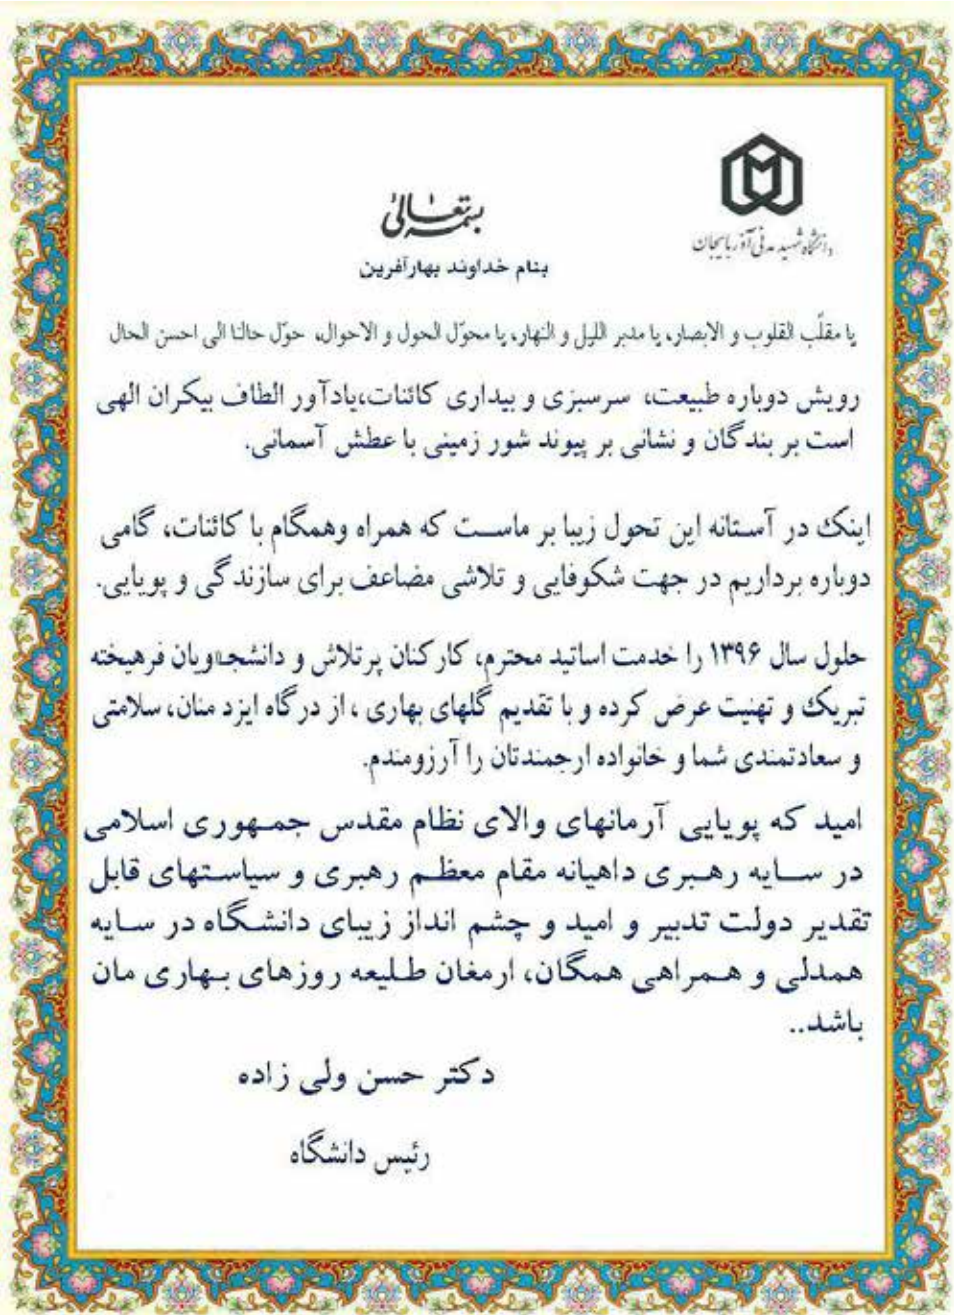 دانشگاه شهید مدنی آذربایجان
بسمه تعالی
بنام خداوند بهارآفرین
یا مقلّب القلوب و الابصار، یا مدبر اللیل و النهار، یا محوّل الحول و الاحوال، حوّل حالنا الی احسن الحال
رویش دوباره طبیعت، سرسبزی و بیداری کائنات،یادآور الطاف بیکران الهی
است بر بندگان و نشانی بر پیوند شور زمینی با عطش آسمانی.
اینک در آستانه این تحول زیبا بر ماست که همراه وهمگام با کائنات، گامی
دوباره برداریم در جهت شکوفایی و تلاشی مضاعف برای سازندگی و پویایی.
حلول سال ۱۳۹۶ را خدمت اساتید محترم، کارکنان پرتلاش و دانشجویان فرهیخته
تبریک و تهنیت عرض کرده و با تقدیم گلهای بهاری ، از درگاه ایزد منان، سلامتی
و سعادتمندی شما و خانواده ارجمندتان را آرزومندم.
امید که پویایی آرمانهای والای نظام مقدس جمهوری اسلامی
در سایه رهبری داهیانه مقام معظم رهبری و سیاستهای قابل
تقدیر دولت تدبیر و امید و چشم انداز زیبای دانشگاه در سایه
همدلی و همراهی همگان، ارمغان طلیعه روزهای بهاری مان
باشد..
دکتر حسن ولی زاده
رئیس دانشگاه